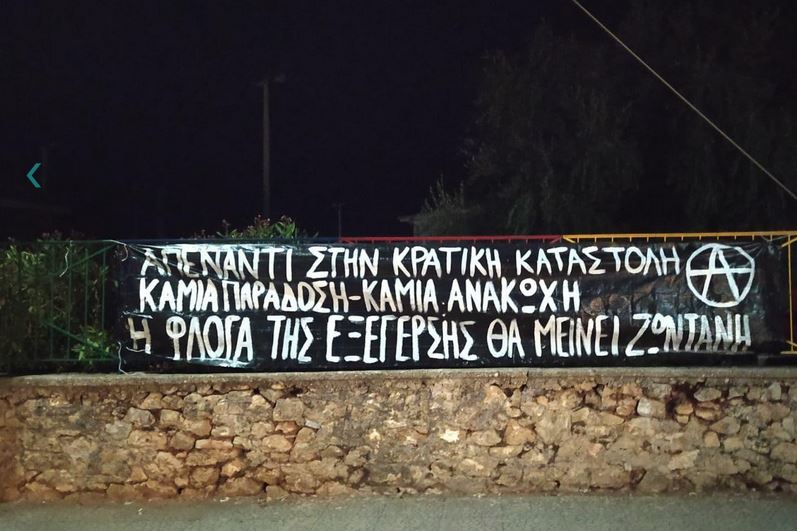 ΑΠΕΝΑΝΤΙ ΣΤΗΝ ΚΡΑΤΙΚΗ ΚΑΤΑΣΤΟΛΗ Ⓐ
ΚΑΜΙΑ ΠΑΡΑΔΟΣΗ-ΚΑΜΙΑ ΑΝΑΚΩΧΗ
Η ΦΛΟΓΑ ΤΗΣ ΕΞΕΓΕΡΣΗΣ ΘΑ ΜΕΙΝΕΙ ΖΩΝΤΑΝΗ